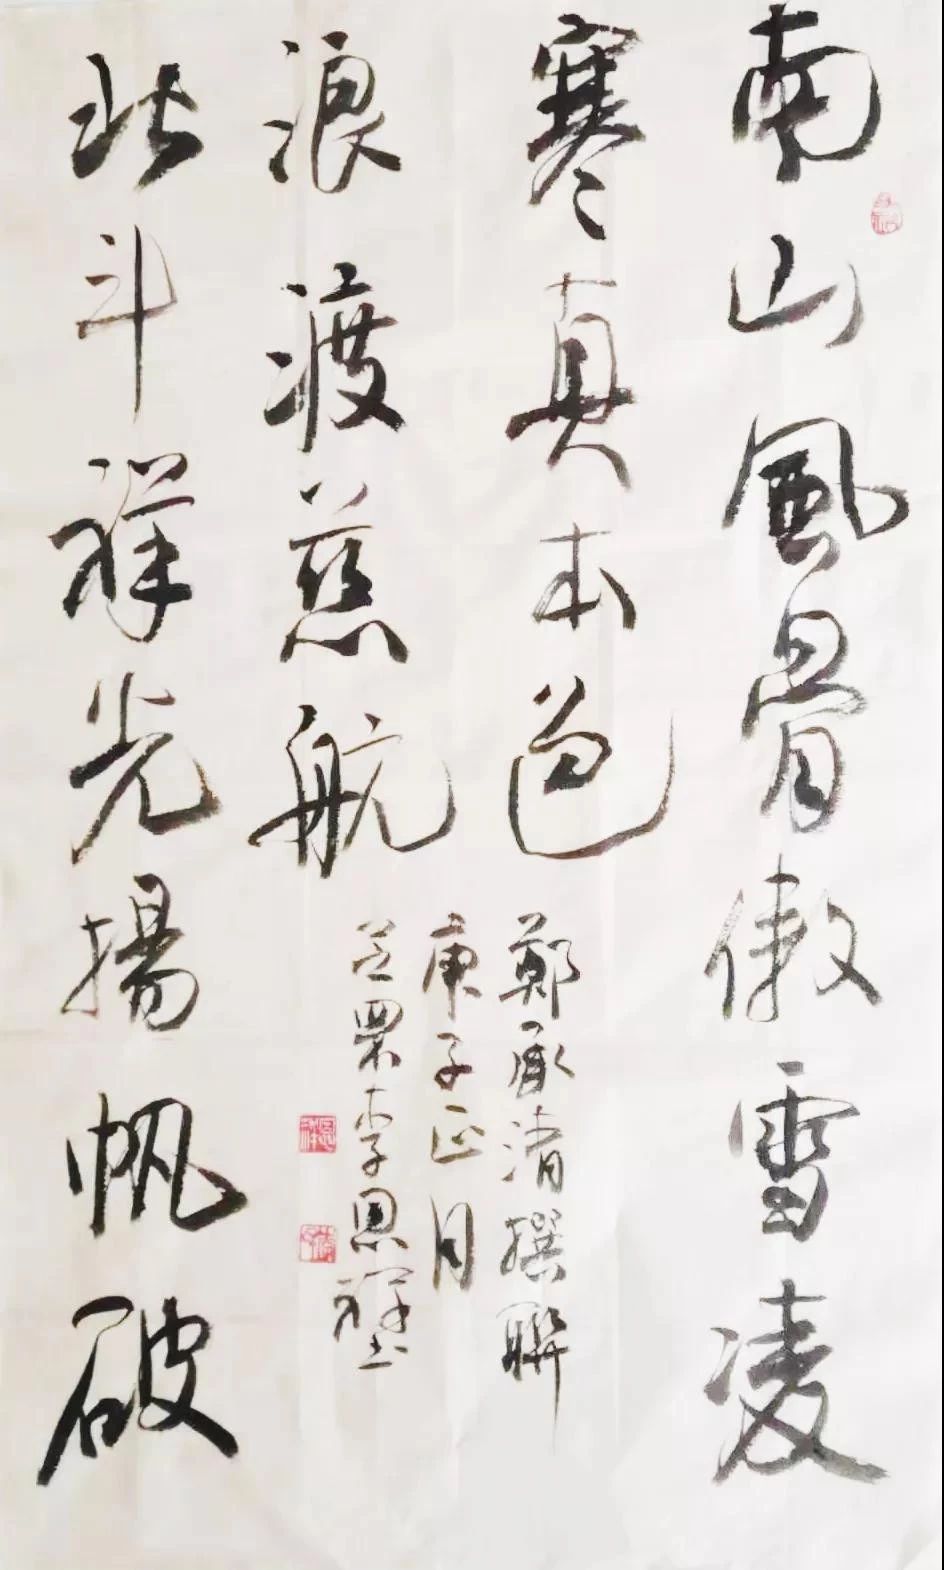 南山風骨傲雪凌
寒真本色
北斗祥光揚帆破
浪渡慈航
鄭承清撰聯
庚子正月
芝罘李恩祥书